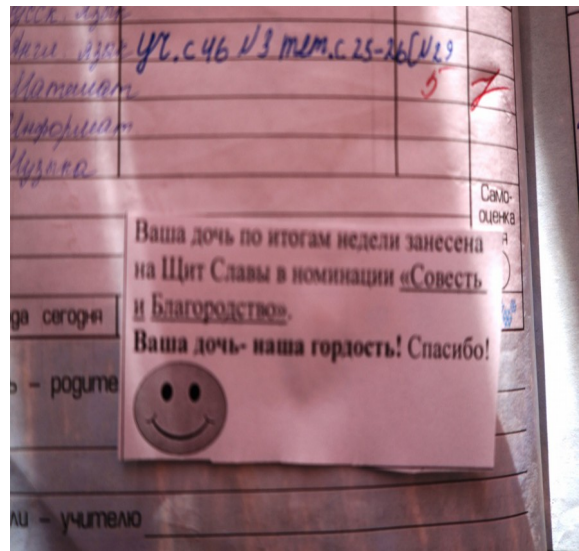 Русск. язык
Англ. язык уч. с 46 №3 тет. с 25-26 (№29
Математ 5
Информат
Музыка
Само-
оценка
Ваша дочь по итогам недели занесена
на Щит Славы в номинации «Совесть
и Благородство».
Ваша дочь- наша гордость! Спасибо!
да сегодня
– родите
ли – учителю